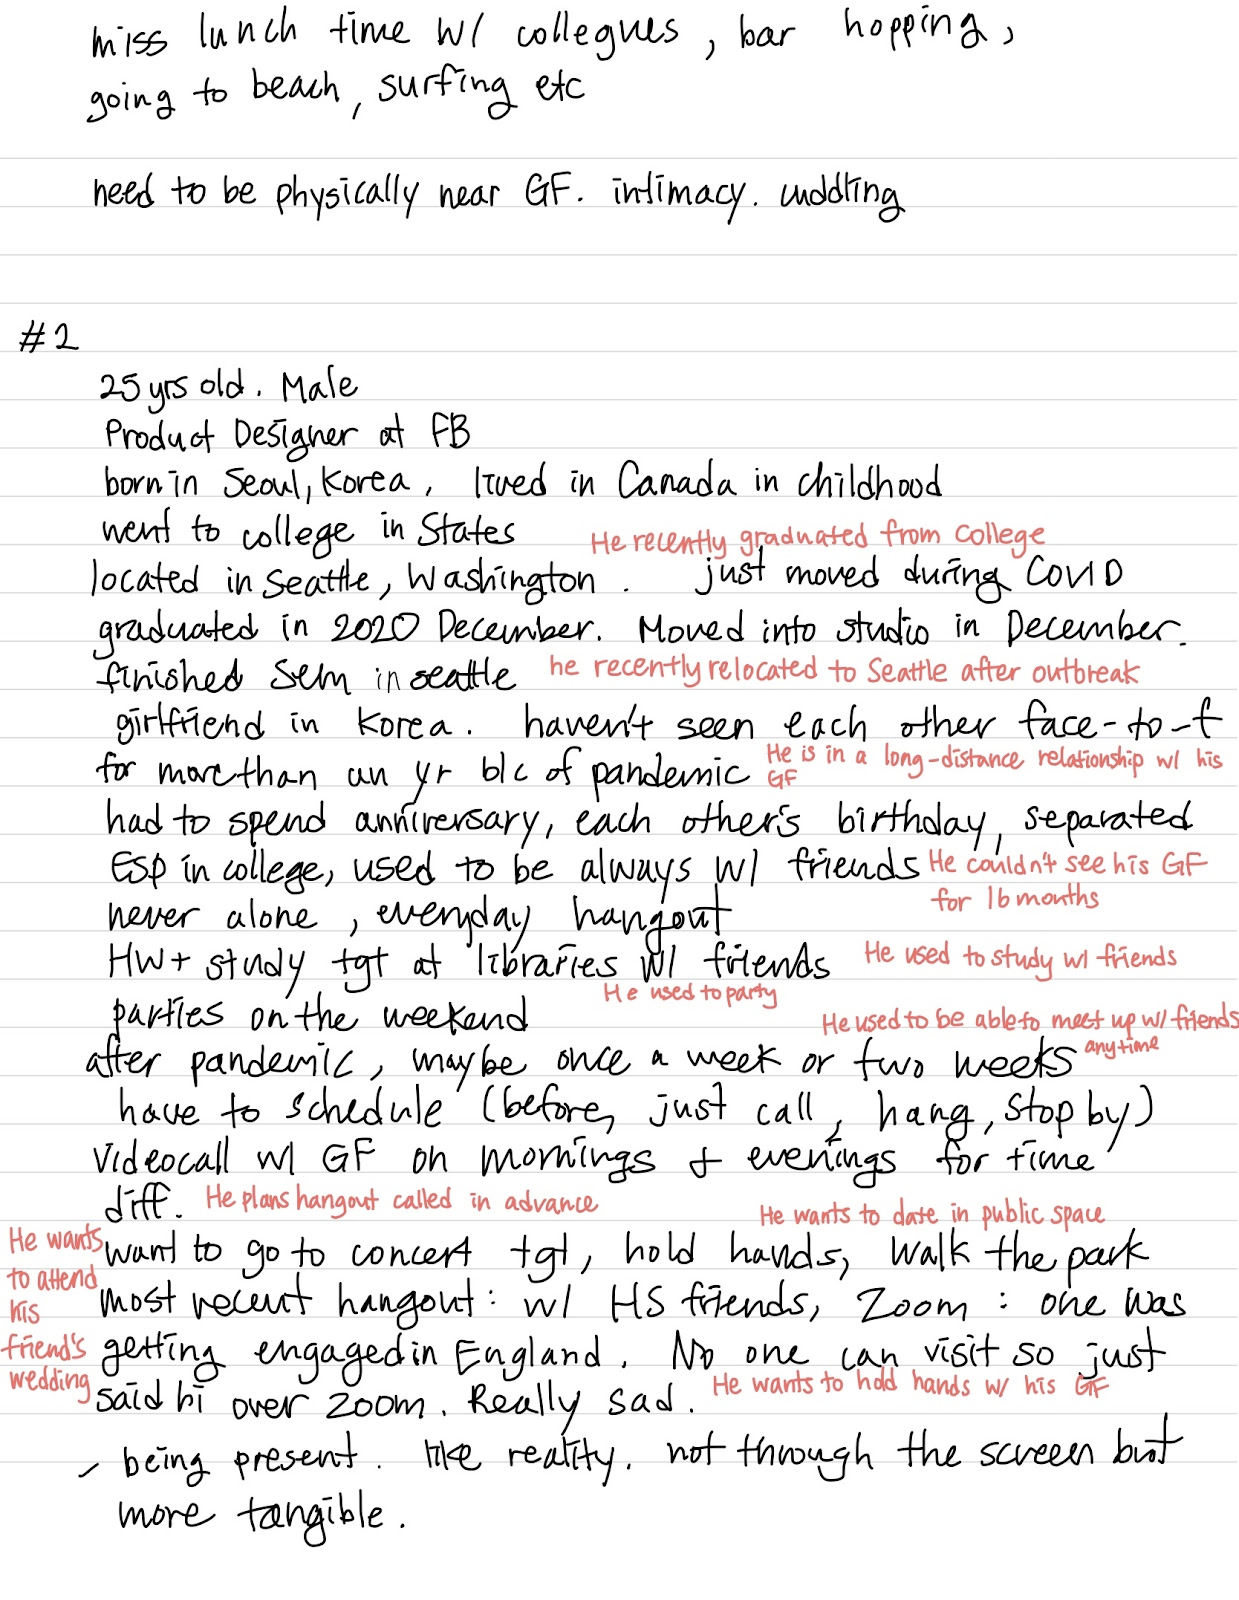 miss lunch time w/ collegues, bar hopping,
going to beach, surfing etc
need to be physically near GF. intimacy. cuddling
#2
25 yrs old. Male
Product Designer at FB
born in Seoul, Korea, lived in Canada in childhood
went to college in States
He recently graduated from College
located in Seattle, Washington. just moved during COVID
graduated in 2020 December. Moved into studio in December.
finished Sem in seattle he recently relocated to Seattle after outbreak
girlfriend in Korea. haven't seen each other face-to-f
for more than an yr b/c of pandemic He is in a long-distance relationship w/ his
GF
had to spend anniversary, each other's birthday, separated
Esp in college, used to be always w/ friends He couldn't see his GF
for 16 months
never alone, everyday hangout
HW + study tgt at libraries w/ friends He used to study w/ friends
He used to party
parties on the weekend
He used to be able to meet up w/ friends
anytime
after pandemic, maybe once a week or two weeks
have to schedule (before, just call, hang, stop by)
Videocall w/ GF on mornings & evenings for time
diff. He plans hangout called in advance
He wants to date in public space
He wants
to attend
his
friend's
wedding
want to go to concert tgt, hold hands, walk the park
most recent hangout: w/ HS friends, Zoom: one was
getting engaged in England. No one can visit so just
said hi over zoom. Really sad. He wants to hold hands w/ his GF
- being present. like reality. not through the screeen but
more tangible.